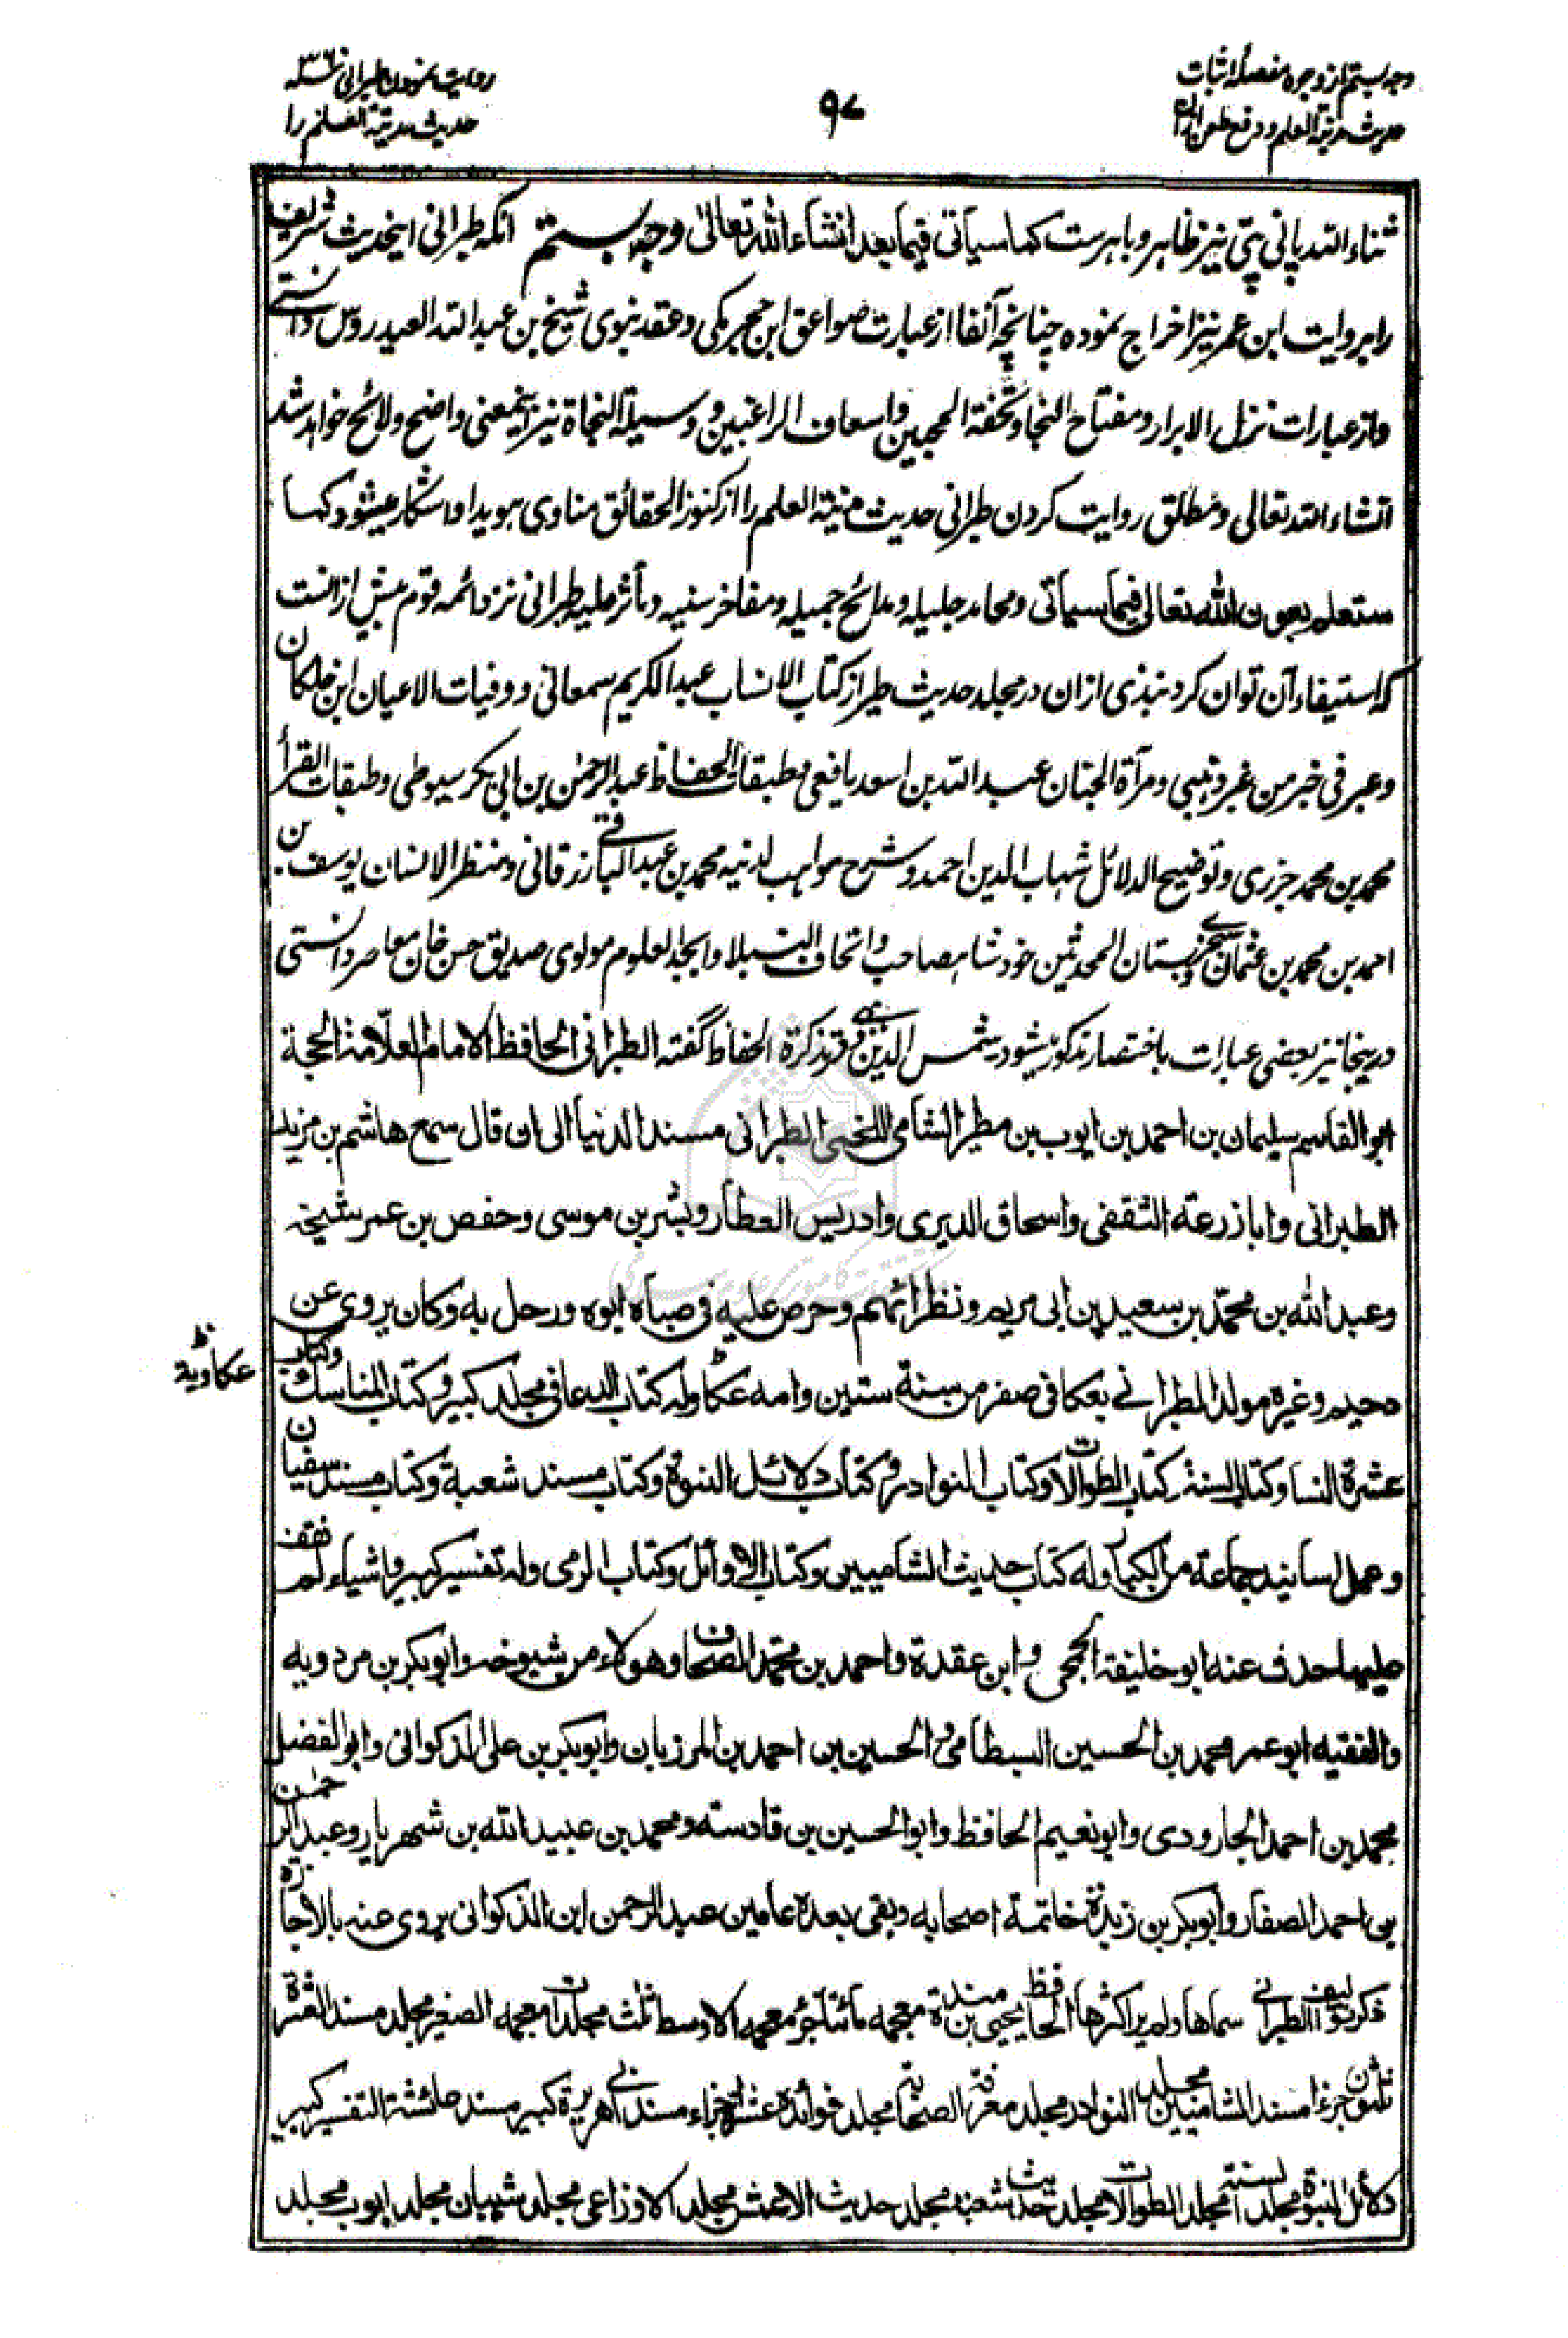 وجه بستم از وجوه مفصله اثبات
حديث مدينة العلم ودفع طعن
۹۷
روايت نمودن طبرانی ۳۶۰
حديث مدينة العلم را
ثناء الله پانی پتی نيز ظاهر وباهرست كما سيأتی فيما بعد انشاء الله تعالى وجه بستم آنكه طبرانی اينحديث شريف
را بروايت ابن عمر نيز اخراج نموده چنانچه آنفا از عبارت صواعق ابن حجر مكی وعقد نبوی شيخ بن عبد الله العيدروس دانستی
واز عبارات نزل الابرار ومفتاح النجا وتحفة المحبين واسعاف الراغبين ووسيلة النجاة نيز اينمعنی واضح ولائح خواهد شد
انشاء الله تعالى ومطلق روايت كردن طبرانی حديث مدينة العلم را از كنوز الحقائق مناوی هويدا واشكار ميشود كما
ستعلم بعون الله تعالى فيما سيأتی ومحامد جليله ومدائح جميله ومفاخر سنيه ومآثر عليه طبرانی نزد ائمه قوم بيش از انست
كه استيفاء آن توان كرد نبذی ازان در مجلد حديث طير از كتاب الانساب عبد الكريم سمعانی ووفيات الاعيان ابن خلكان
وعبر فی خبر من غبر ذهبی ومرآة الجنان عبد الله بن اسعد يافعی وطبقات الحفاظ عبد الرحمن بن ابی بكر سيوطی وطبقات القرأ
محمد بن محمد جزری وتوضيح الدلائل شهاب الدين احمد وشرح مواهب لدنيه محمد بن عبد الباقی زرقانی ومنتظر الانسان يوسف بن
احمد بن محمد بن عثمان وبستان المحدثين خود شاهصاحب واتحاف النبلا وابجد العلوم مولوی صديق حسن خان معاصر دانستی
درينجا نيز بعضی عبارات باختصار مذكور ميشود شمس الدين ذهبی در تذكرة الحفاظ گفته الطبرانی الحافظ الامام العلامة الحجة
ابو القاسم سليمان بن احمد بن ايوب بن مطير الشامی اللخمی الطبرانی مسند الدنيا الى ان قال سمع هاشم بن مزيد
الطبرانی وابا زرعة الثقفی واسحاق الدبری وادريس العطار وبشر بن موسى وحفص بن عمر سنجه
وعبد الله بن محمد بن سعيد بن ابی مريم ونظرائهم وحرص عليه فی صباه ابوه ورحل به وكان يروی عن
دحيم وغيره مولد الطبرانی بعكا فی صفر من سنة ستين وامه عكا وله كتاب الدعا فی مجلد كبير وكتاب المناسك وكتاب
عكاوية ظ
عشرة النسا وكتاب السنة وكتاب الطوالات وكتاب النوادر وكتاب دلائل النبوة وكتاب مسند شعبة وكتاب مسند سفيان
وعمل اسانيد جماعة من الكبار وله كتاب حديث الشاميين وكتاب الاوائل وكتاب الرمی وله تفسير كبير واشياء لم نقف
عليها حدث عنه ابو خليفة الجمحی وابن عقدة واحمد بن محمد الصحاف وهولاء من شيوخه وابو بكر بن مردويه
والفقيه ابو عمر محمد بن الحسين البسطامی والحسين بن احمد بن المرزبان وابو بكر بن علی الذكوانی وابو الفضل
محمد بن احمد الجارودی وابو نعيم الحافظ وابو الحسين بن فادشته ومحمد بن عبيد الله بن شهريار وعبد الرحمن
بن احمد الصفار وابو بكر بن زيدة خاتمة اصحابه وبقی بعده عامين عبد الرحمن ابن الذكوانی يروی عنه بالاجازة
ذكر تواليف الطبرانی سماها ولم ير اكثرها الحافظ يحيى بن مندة معجمه مأتا جزء معجمه الاوسط ثلث مجلدات معجمه الصغير مجلد مسند العشرة
ثلثون جزءا مسند الشاميين مجلد النوادر مجلد معرفة الصحابة مجلد فوائده عشرة اجزاء مسند ابی هريرة كبير مسند عائشة التفسير كبير
دلائل النبوة مجلد السنة مجلد الطوالات مجلد حديث شعبة مجلد حديث الاعمش مجلد الاوزاعی مجلد شيبان مجلد ايوب مجلد